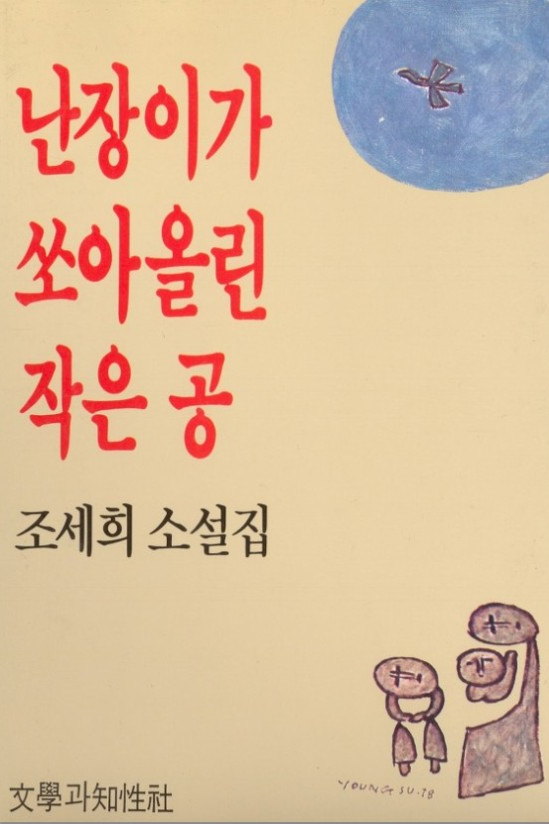 난장이가
쏘아올린
작은 공
조세희 소설집
YOUNG SU.78
文學과知性社